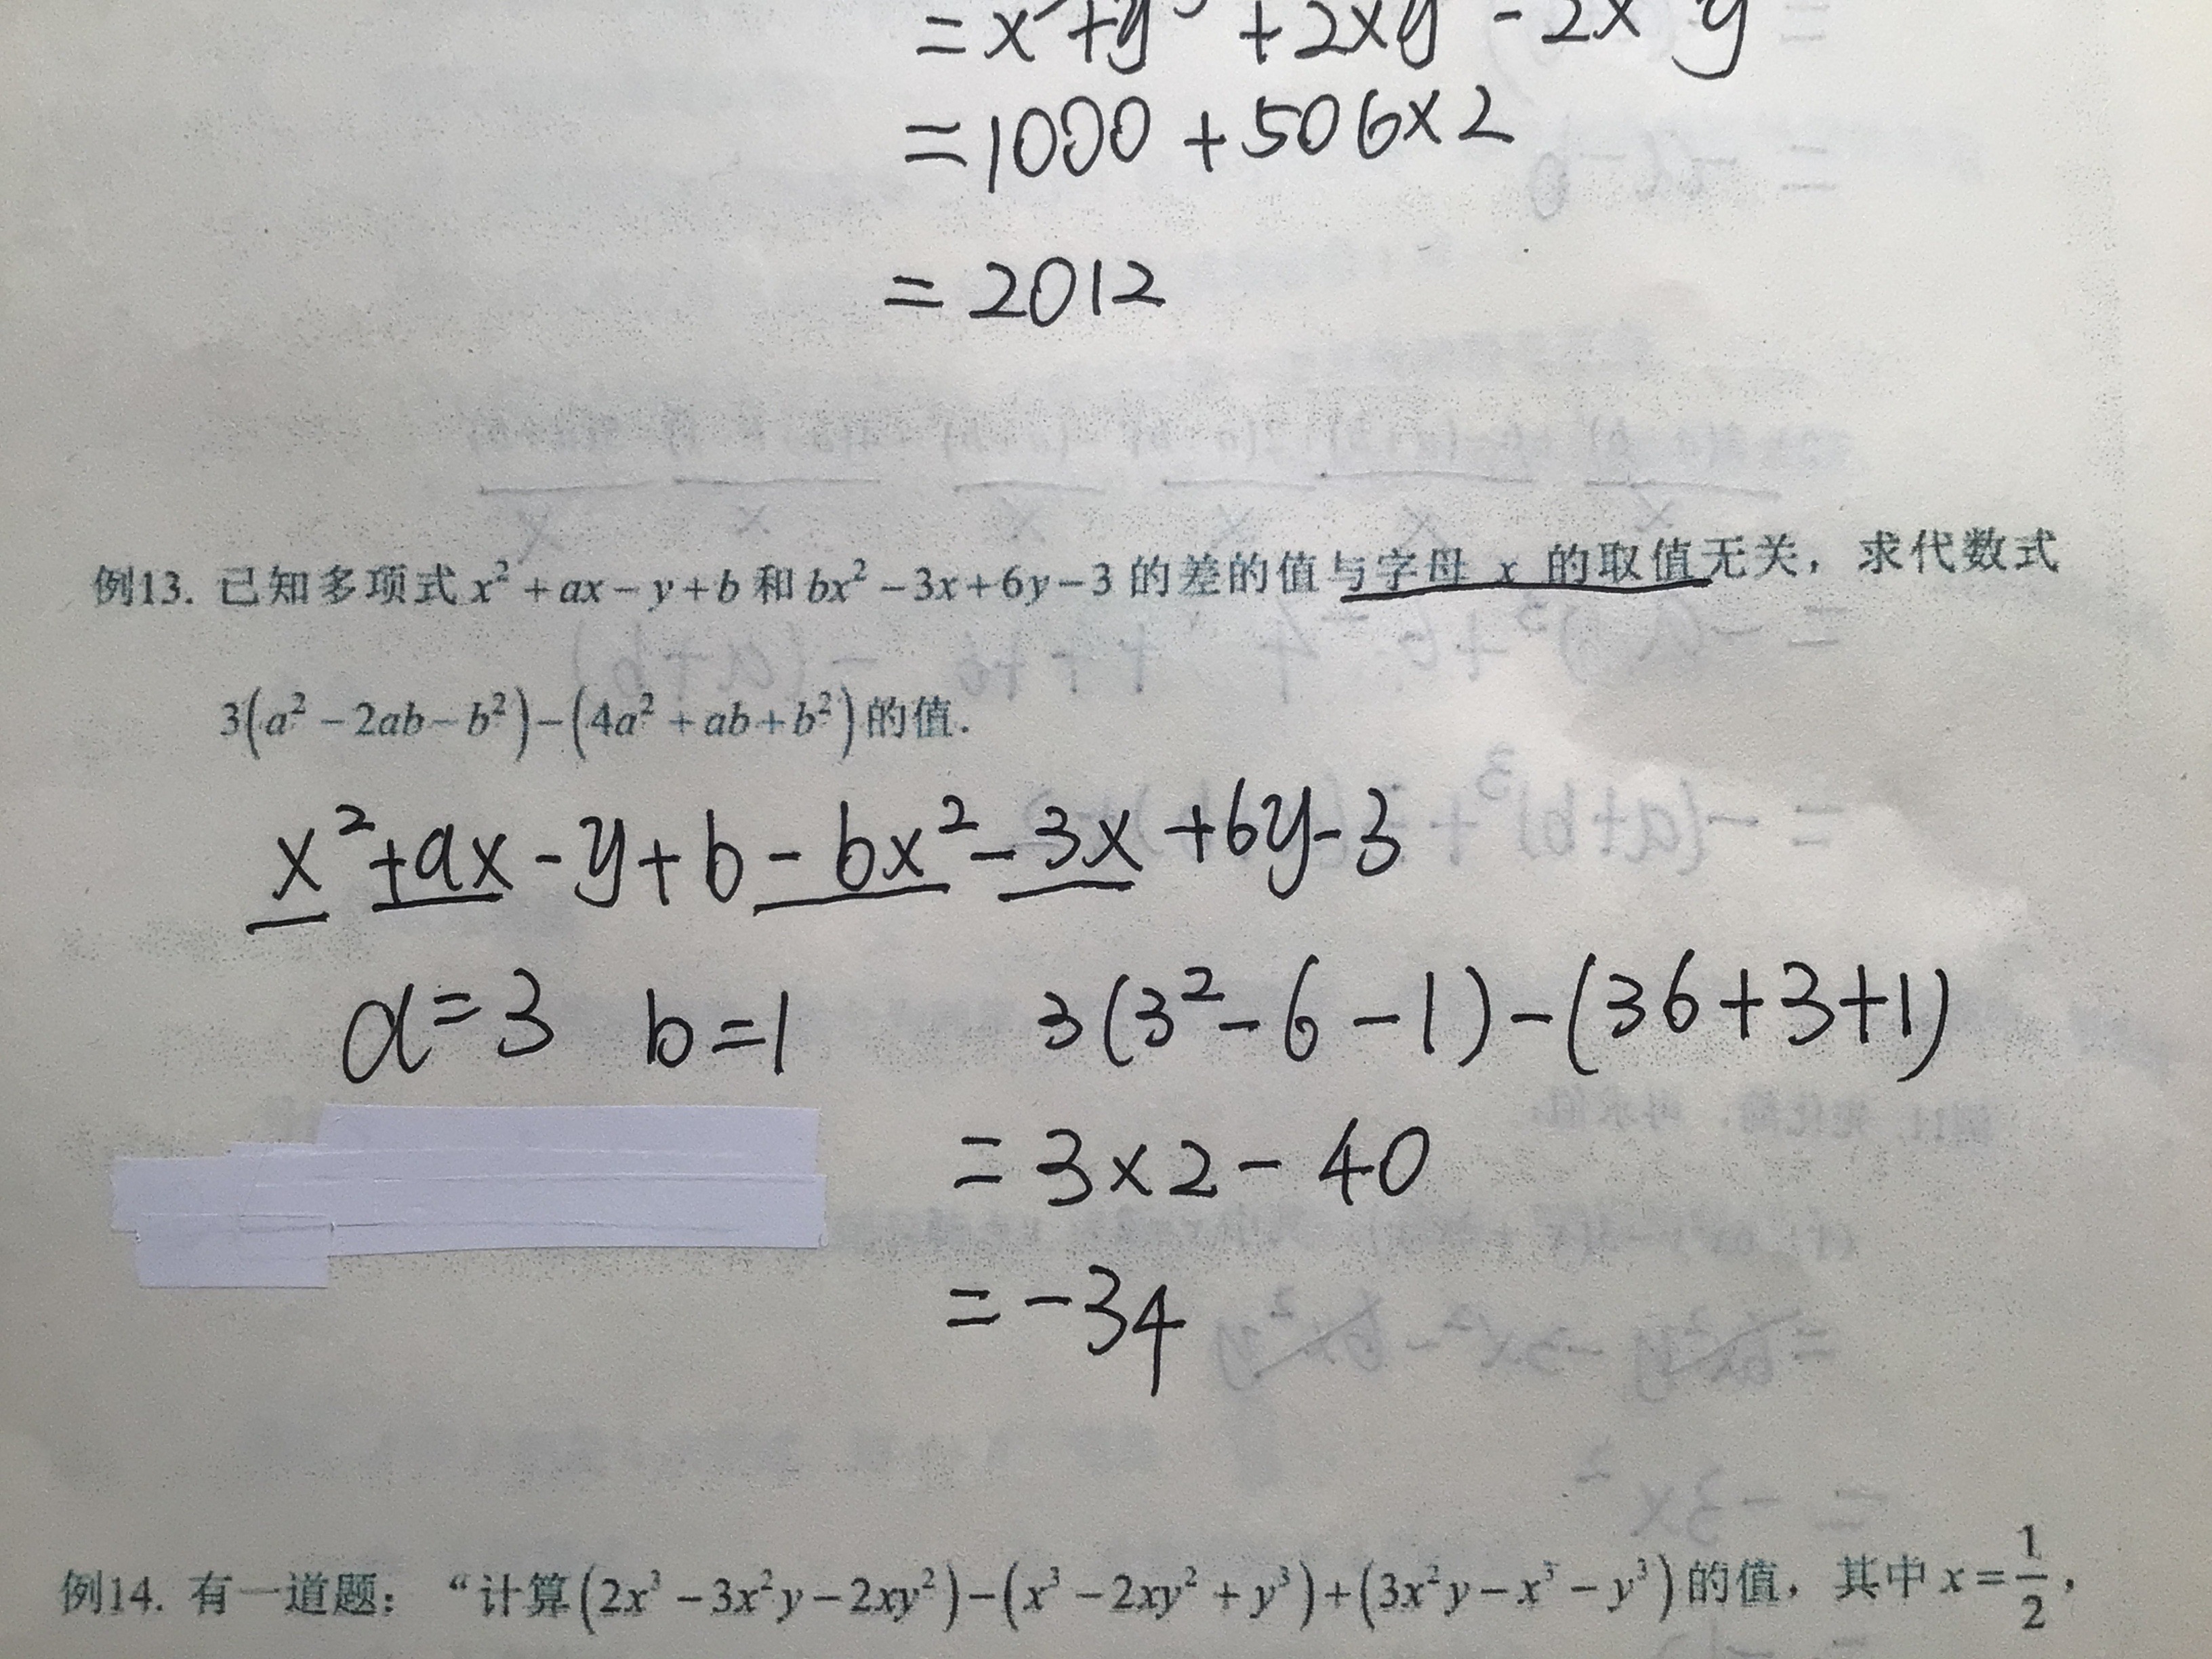 =x²+y³+2xy-2x²y
=1000+506×2
=2012
例13. 已知多项式x²+ax-y+b和bx²-3x+6y-3的差的值与字母 x 的取值无关，求代数式
3(a²-2ab-b²)-(4a²+ab+b²)的值.
x²+ax-y+b-bx²-3x+6y-3
a=3 b=1 3(3²-6-1)-(36+3+1)
=3×2-40
=-34
例14. 有一道题：“计算(2x³-3x²y-2xy²)-(x³-2xy²+y³)+(3x²y-x³-y³)的值，其中x=1/2，